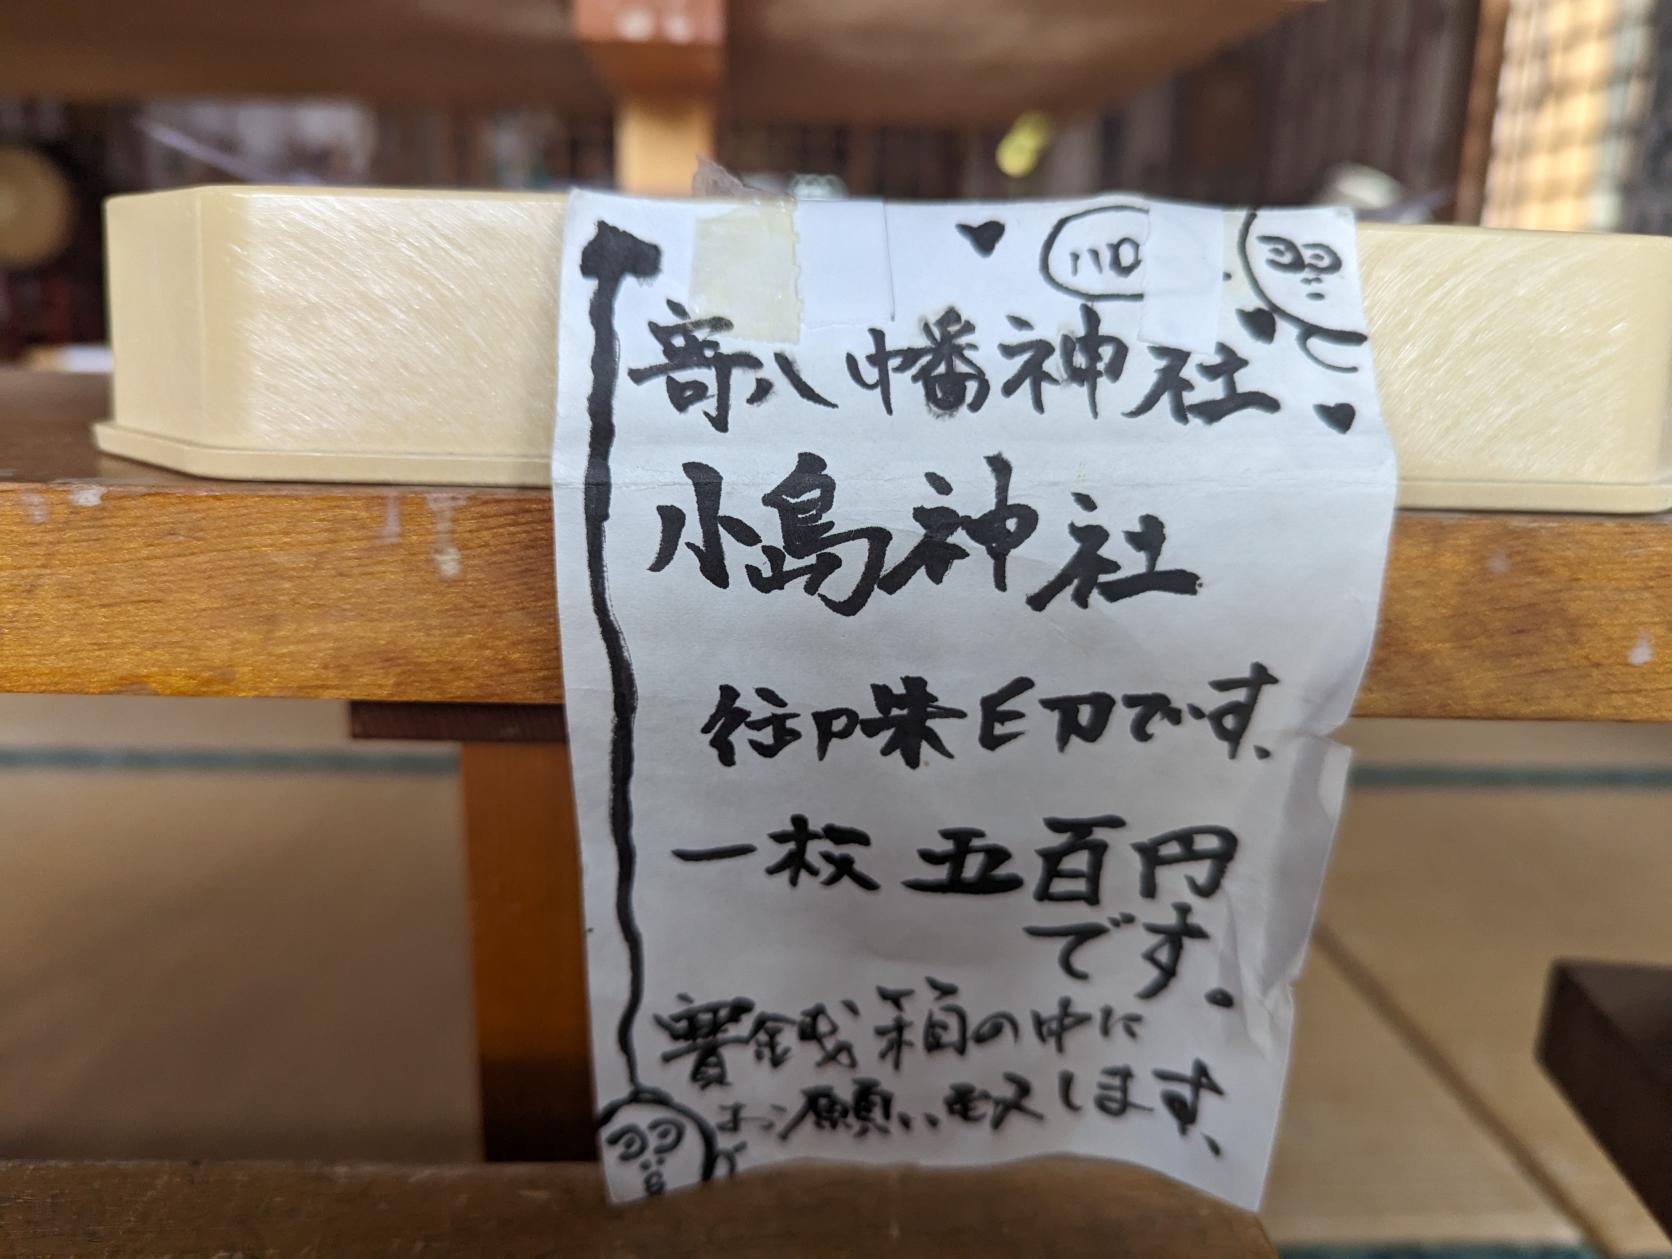 寄八幡神社
小島神社
御朱印です
一枚 五百円
です。
賽銭箱の中に
お願い致します、